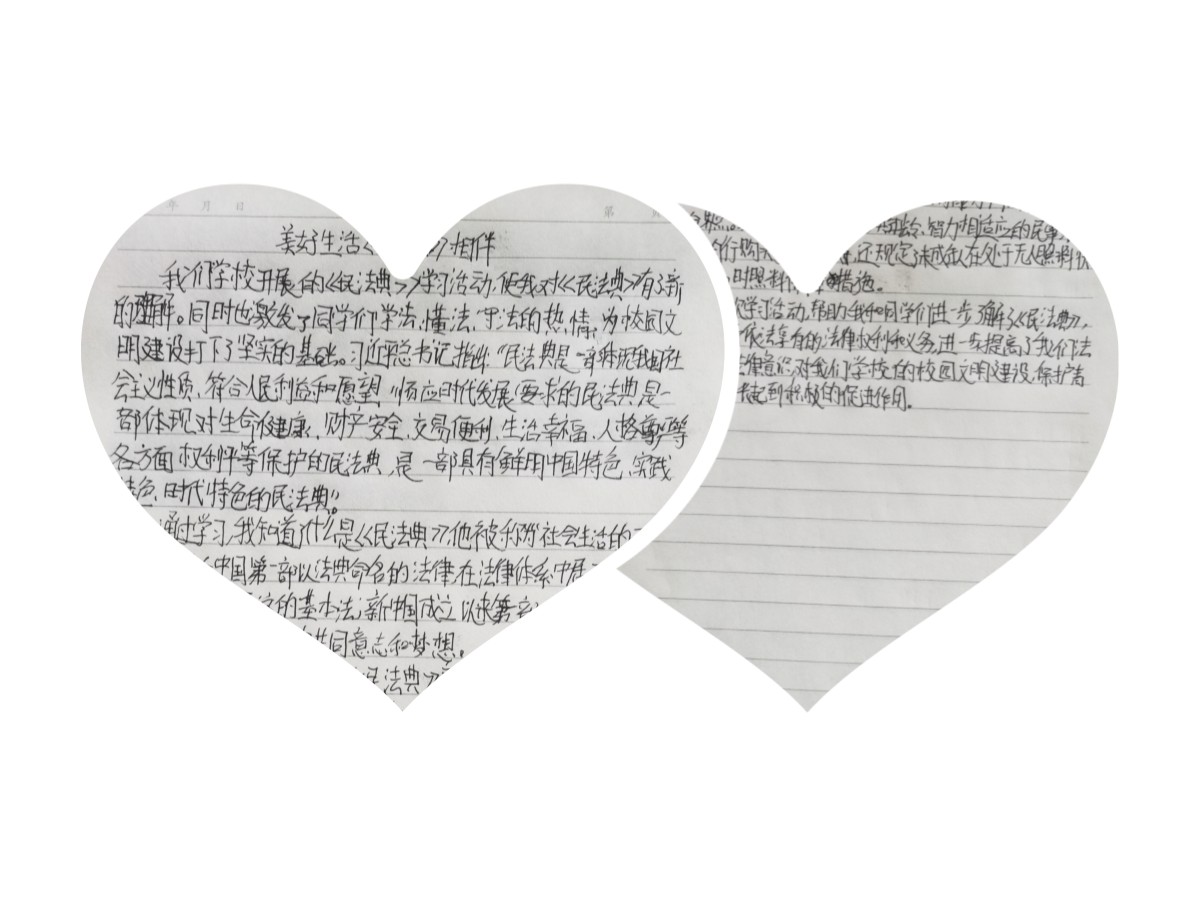 年 月 日
第
美好生活《 》相伴
我们学校开展的《民法典》学习活动,使我对《民法典》有了新
的理解。同时也激发了同学们学法、懂法、守法的热情,为校园文
明建设打下了坚实的基础。习近平总书记指出:“民法典是一部体现我国社
会主义性质、符合人民利益和愿望、顺应时代发展要求的民法典,是一
部体现对生命健康、财产安全、交易便利、生活幸福、人格尊严等
各方面权利平等保护的民法典,是一部具有鲜明中国特色、实践
特色、时代特色的民法典”。
通过学习,我知道什么是《民法典》,他被称为社会生活的
中国第一部以法典命名的法律,在法律体系中居
的基本法;新中国成立以来第
共同意志和梦想。
民法典》
年龄、智力相适应的民事
行 还规定了未成年人在处于无人照料状
时照料 措施。
学习活动,帮助了我和同学们进一步了解了《民法典》,
依法享有的法律权利和义务,进一步提高了我们法
律意识,对我们学校的校园文明建设、保护青
起到积极的促进作用。